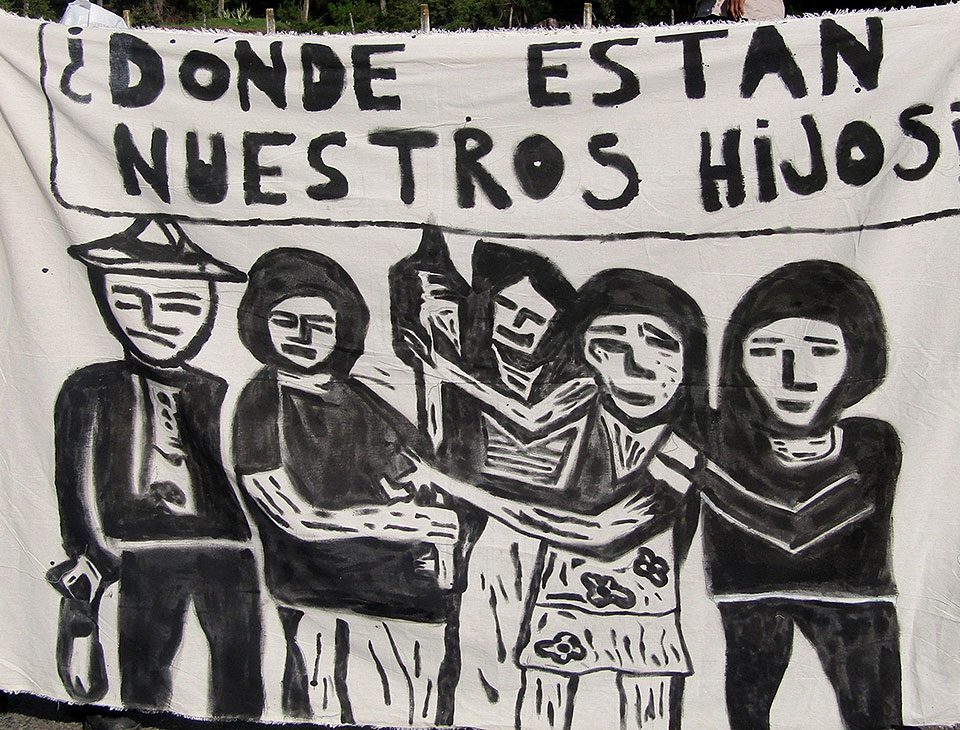 ¿DONDE ESTAN
NUESTROS HiJOS?